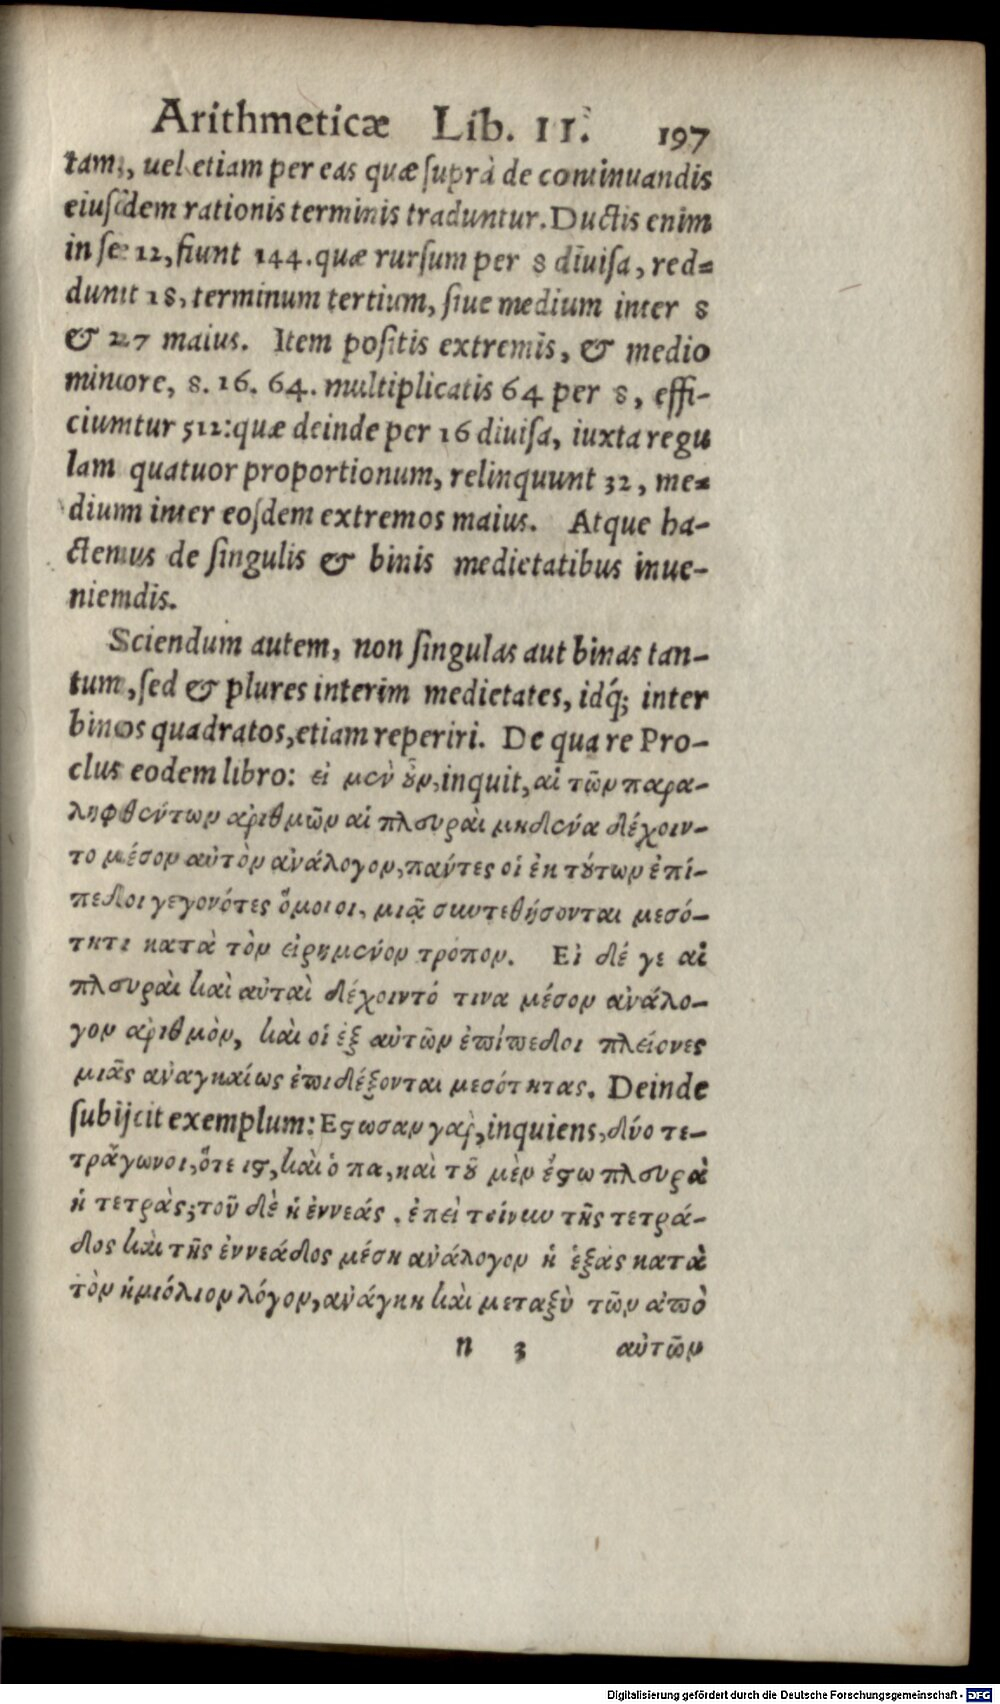 Arithmeticæ Lib. II. 197
tam, uel etiam per eas quæ suprà de continuandis
eiusdem rationis terminis traduntur. Ductis enim
in se 12, fiunt 144. quæ rursum per 8 diuisa, red=
dunt 18, terminum tertium, siue medium inter 8
& 27 maius. Item positis extremis, & medio
minore, 8. 16. 64. multiplicatis 64 per 8, effi-
ciuntur 512: quæ deinde per 16 diuisa, iuxta regu
lam quatuor proportionum, relinquunt 32, me=
dium inter eosdem extremos maius. Atque ha-
ctenus de singulis & binis medietatibus inue-
niendis.
Sciendum autem, non singulas aut binas tan-
tum, sed & plures interim medietates, idq́; inter
binos quadratos, etiam reperiri. De qua re Pro-
clus eodem libro: εἰ μὲν οὖν, inquit, αἱ τῶν παρα-
ληφθέντων ἀριθμῶν αἱ πλευραὶ μηδένα δέχοιν-
το μέσον αὐτὸν ἀνάλογον, πάντες οἱ ἐκ τούτων ἐπί-
πεδοι γεγονότες ὅμοιοι, μιᾷ συντεθήσονται μεσό-
τητι κατὰ τὸν εἰρημένον τρόπον. Εἰ δέ γε αἱ
πλευραὶ καὶ αὐταὶ δέχοιντό τινα μέσον ἀνάλο-
γον ἀριθμὸν, καὶ οἱ ἐξ αὐτῶν ἐπίπεδοι πλείονες
μιᾶς ἀναγκαίως ἐπιδέξονται μεσότητας. Deinde
subijcit exemplum: Εϛωσαν γαρ̀, inquiens, δύο τε-
τράγωνοι, ὅτε ιϛ, καὶ ὁ πα, καὶ τοῦ μὲν ἔϛω πλευρὰ
ἡ τετρὰς; τοῦ δὲ ἡ ἐννεάς. ἐπεὶ τοίνυν τῆς τετρά-
δος καὶ τῆς ἐννεάδος μέση ἀνάλογον ἡ ἑξὰς κατὰ
τὸν ἡμιόλιον λόγον, ἀνάγκη καὶ μεταξὺ τῶν ἀπὸ
n 3 αὐτῶν
Digitalisierung gefördert durch die Deutsche Forschungsgemeinschaft - DFG